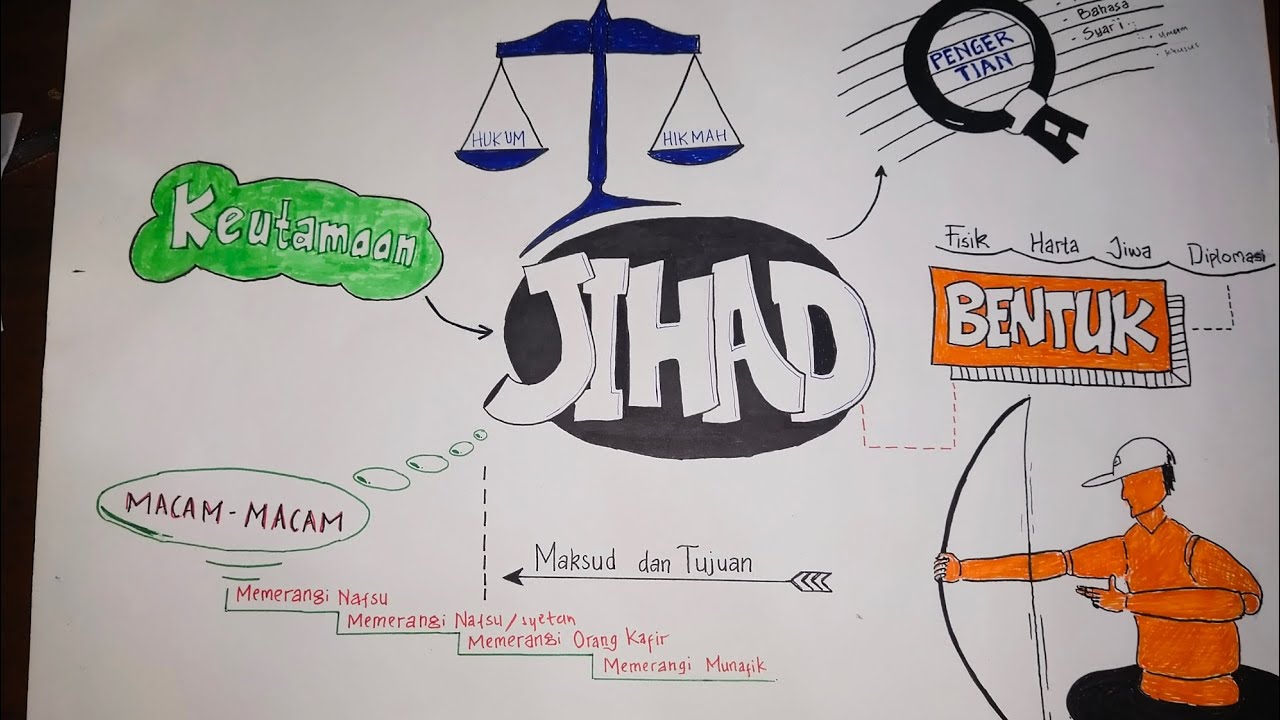 HUKUM
HIKMAH
PENGER
TIAN
- Bahasa
- Syar'i
- umum
- khusus
Keutamaan
JIHAD
Fisik Harta Jiwa Diplomasi
BENTUK
MACAM-MACAM
Maksud dan Tujuan
Memerangi Nafsu
Memerangi Nafsu/syetan
Memerangi Orang Kafir
Memerangi Munafik